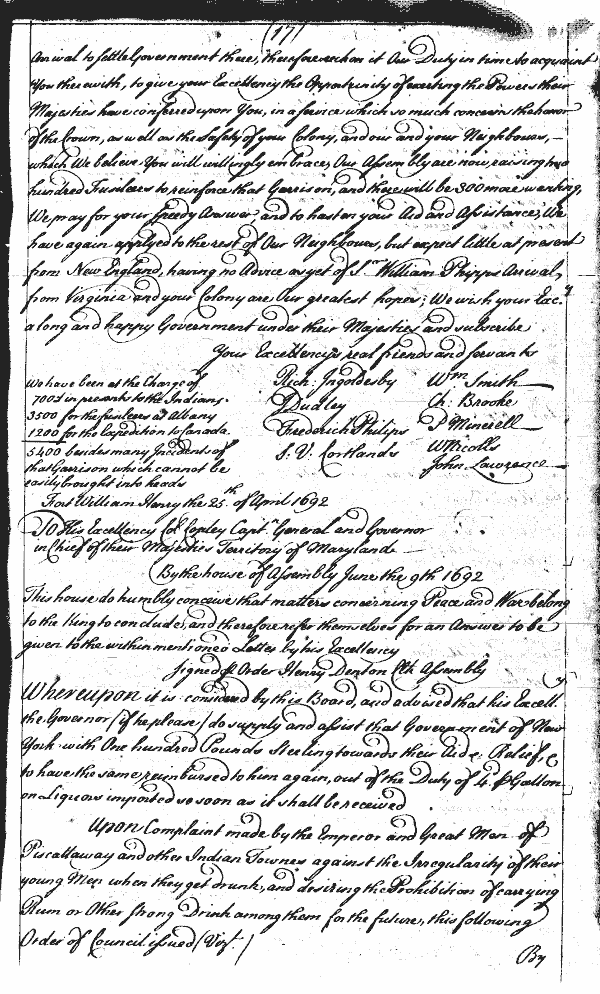 (17)
Arrival to settle Government there, therefore reckon it Our Duty in time to acquaint
You therewith, to give your Excellency the Opportunity of exerting the Powers their
Majesties have conferred upon You, in a service which so much concerns the honor
of the Crown, as well as the Safety of your Colony, and our and your Neighbours, —
which We believe You will willingly embrace, Our Assembly are now raising two
hundred Fusileers to reinforce that Garrison, and there will be 300 more wanting,
We pray for your speedy Answer, and to hasten your Aid and Assistance, We
have again applyed to the rest of Our Neighbours, but expect little at present
from New England, having no Advice as yet of Sr. William Phipps Arrival,
from Virginia and your Colony are Our greatest hopes; We wish your Exc.y
a long and happy Government under their Majesties and subscribe
Your Excellency's real friends and servants
We have been at the Charge of Rich: Ingoldesby Wm Smith
700 in presents to the Indians. Dudley Ch. Brooke
3500 for the fusileers at Albany Frederick Philips P Minviell
1200 for the Expedition to Canada S. V. Cortlandt W Nicolls
5400 besides many Incidents of John Lawrence
that Garrison which cannot be
easily brought into heads
Fort William Henry the 25th of April 1692
To His Excellency Col Copley Captn General and Governor
in Chief of their Majesties Territory of Maryland —
By the house of Assembly June the 9th 1692
This house do humbly conceive that matters concerning Peace and War belong
to the King to conclude, and therefore refer themselves for an Answer to be
given to the within mentioned Letter by his Excellency
Signed p Order Henry Denton Clk Assembly
Whereupon it is considered by this Board, and advised that his Excell.cy
the Governor (if he please) do supply and assist that Government of New
York with One hundred Pounds Sterling towards their Aid & Relief, &
to have the same reimbursed to him again, out of the Duty of 4d p Gallon
on Liquors imported so soon as it shall be received
Upon Complaint made by the Emperor and Great Men of
Piscattaway and other Indian Townes against the Irregularity of their
young Men when they get drunk, and desiring the Prohibition of carrying
Rum or Other strong Drink among them for the future, this following
Order of Council issued (Vizt.)
By